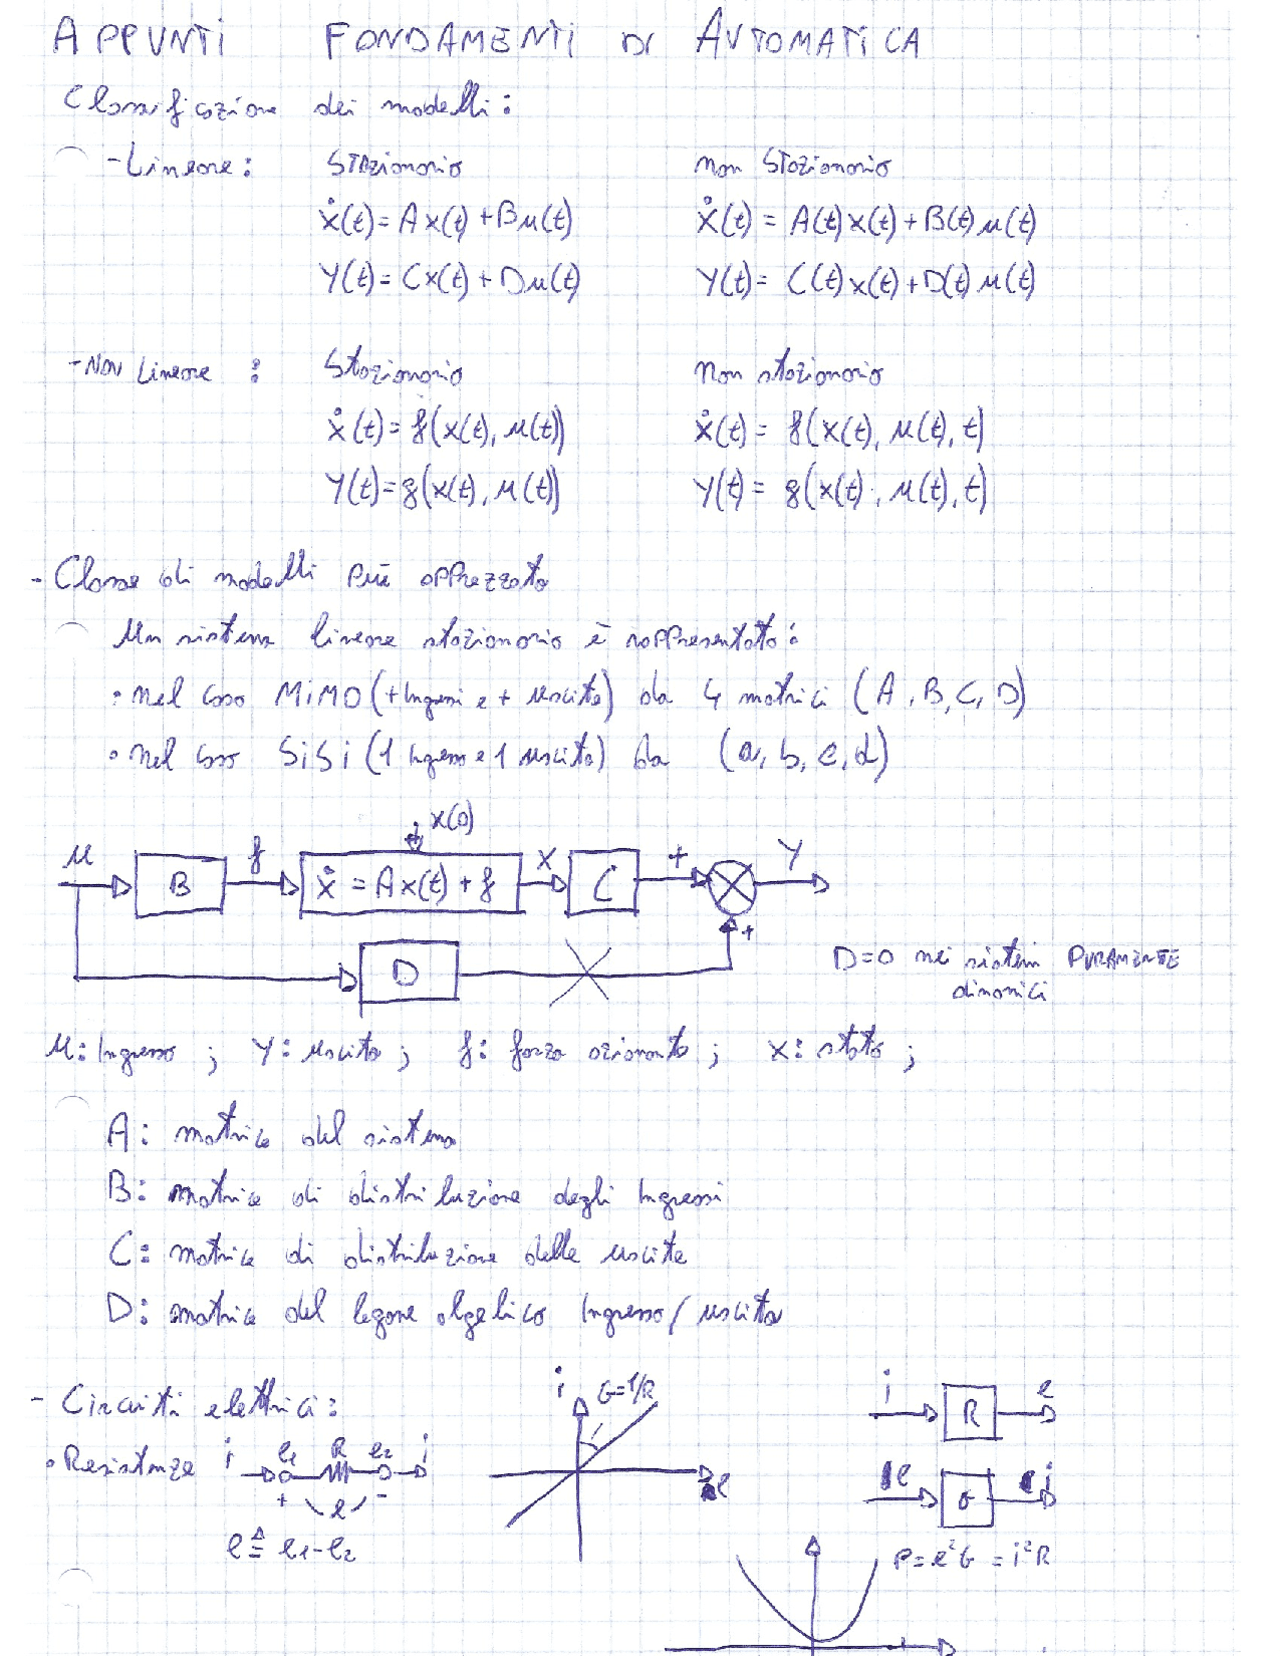 APPUNTI FONDAMENTI DI AUTOMATICA
Classificazione dei modelli:
- Lineare: Stazionario non Stazionario
ẋ(t) = Ax(t) + Bu(t) ẋ(t) = A(t)x(t) + B(t)u(t)
Y(t) = Cx(t) + Du(t) Y(t) = C(t)x(t) + D(t)u(t)
- Non Lineare : Stazionario non stazionario
ẋ(t) = f(x(t), u(t)) ẋ(t) = f(x(t), u(t), t)
Y(t) = g(x(t), u(t)) Y(t) = g(x(t), u(t), t)
- Classe di modelli più apprezzata
Un sistema lineare stazionario è rappresentato:
• nel caso MiMO (+ Ingressi e + uscite) da 4 matrici (A, B, C, D)
• nel caso SiSi (1 Ingresso e 1 uscita) da (a, b, c, d)
x(0)
u B f ẋ = Ax(t) + f x C + Y
D +
D=0 nei sistemi PURAMENTE
dinamici
u: Ingresso ; Y: uscita ; f: forza azionante ; x: stato ;
A: matrice del sistema
B: matrice di distribuzione degli Ingressi
C: matrice di distribuzione delle uscite
D: matrice del legame algebrico Ingresso/uscita
- Circuiti elettrici: i G=1/R i R e
• Resistenze i e1 R e2 i e e G i
+ e -
e ≜ e1-e2 P = e²G = i²R